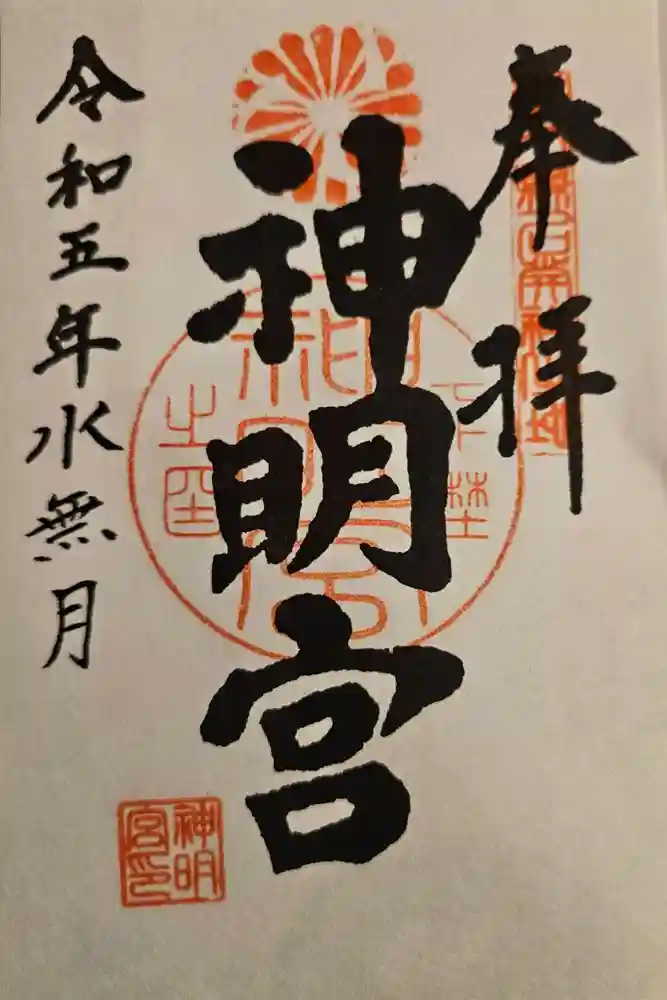 奉拝
神明宮
令和五年水無月
神明宮印